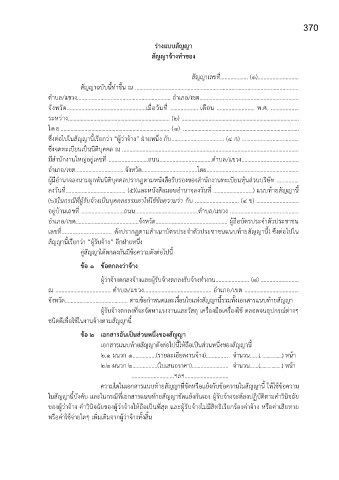 370
ร่างแบบสัญญา
สัญญาจ้างทำของ
สัญญาเลขที่................ (๑)........................
สัญญาฉบับนี้ทำขึ้น ณ ................................................
ตำบล/แขวง........................ อำเภอ/เขต........................
จังหวัด........................เมื่อวันที่ ............ เดือน ................ พ.ศ. ............
ระหว่าง................................ (๒) ................................
โดย ................................ (๓) ................................
ซึ่งต่อไปในสัญญานี้เรียกว่า "ผู้ว่าจ้าง" ฝ่ายหนึ่ง กับ........................ (๔ ก) ........................
ซึ่งจดทะเบียนเป็นนิติบุคคล ณ ................................................
มีสำนักงานใหญ่อยู่เลขที่ ................ถนน................ตำบล/แขวง................
อำเภอ/เขต................จังหวัด................โดย................
ผู้มีอำนาจลงนามผูกพันนิติบุคคลปรากฏตามหนังสือรับรองของสำนักงานทะเบียนหุ้นส่วนบริษัท ............
ลงวันที่................ (๕)(และหนังสือมอบอำนาจลงวันที่ ................) แนบท้ายสัญญานี้
(๖)(ในกรณีที่ผู้รับจ้างเป็นบุคคลธรรมดาให้ใช้ข้อความว่า กับ ................ (๔ ข) ................
อยู่บ้านเลขที่ ................ถนน................ตำบล/แขวง ................
อำเภอ/เขต................จังหวัด................ ผู้ถือบัตรประจำตัวประชาชน
เลขที่................ ดังปรากฏตามสำเนาบัตรประจำตัวประชาชนแนบท้ายสัญญานี้) ซึ่งต่อไปใน
สัญญานี้เรียกว่า "ผู้รับจ้าง" อีกฝ่ายหนึ่ง
คู่สัญญาได้ตกลงกันมีข้อความดังต่อไปนี้
ข้อ ๑ ข้อตกลงว่าจ้าง
ผู้ว่าจ้างตกลงจ้างและผู้รับจ้างตกลงรับจ้างทำงาน................ (๗) ................
ณ ................ ตำบล/แขวง................ อำเภอ/เขต ................
จังหวัด................ ตามข้อกำหนดและเงื่อนไขแห่งสัญญานี้รวมทั้งเอกสารแนบท้ายสัญญา
ผู้รับจ้างตกลงที่จะจัดหาแรงงานและวัสดุ เครื่องมือเครื่องใช้ ตลอดจนอุปกรณ์ต่างๆ
ชนิดดีเพื่อใช้ในงานจ้างตามสัญญานี้
ข้อ ๒ เอกสารอันเป็นส่วนหนึ่งของสัญญา
เอกสารแนบท้ายสัญญาดังต่อไปนี้ให้ถือเป็นส่วนหนึ่งของสัญญานี้
๒.๑ ผนวก ๑............(รายละเอียดงานจ้าง)............ จำนวน....(............) หน้า
๒.๒ ผนวก ๒............(ใบเสนอราคา)............ จำนวน....(............) หน้า
................ฯลฯ................
ความใดในเอกสารแนบท้ายสัญญาที่ขัดหรือแย้งกับข้อความในสัญญานี้ ให้ใช้ข้อความ
ในสัญญานี้บังคับ และในกรณีที่เอกสารแนบท้ายสัญญาขัดแย้งกันเอง ผู้รับจ้างจะต้องปฏิบัติตามคำวินิจฉัย
ของผู้ว่าจ้าง คำวินิจฉัยของผู้ว่าจ้างให้ถือเป็นที่สุด และผู้รับจ้างไม่มีสิทธิเรียกร้องค่าจ้าง หรือค่าเสียหาย
หรือค่าใช้จ่ายใดๆ เพิ่มเติมจากผู้ว่าจ้างทั้งสิ้น